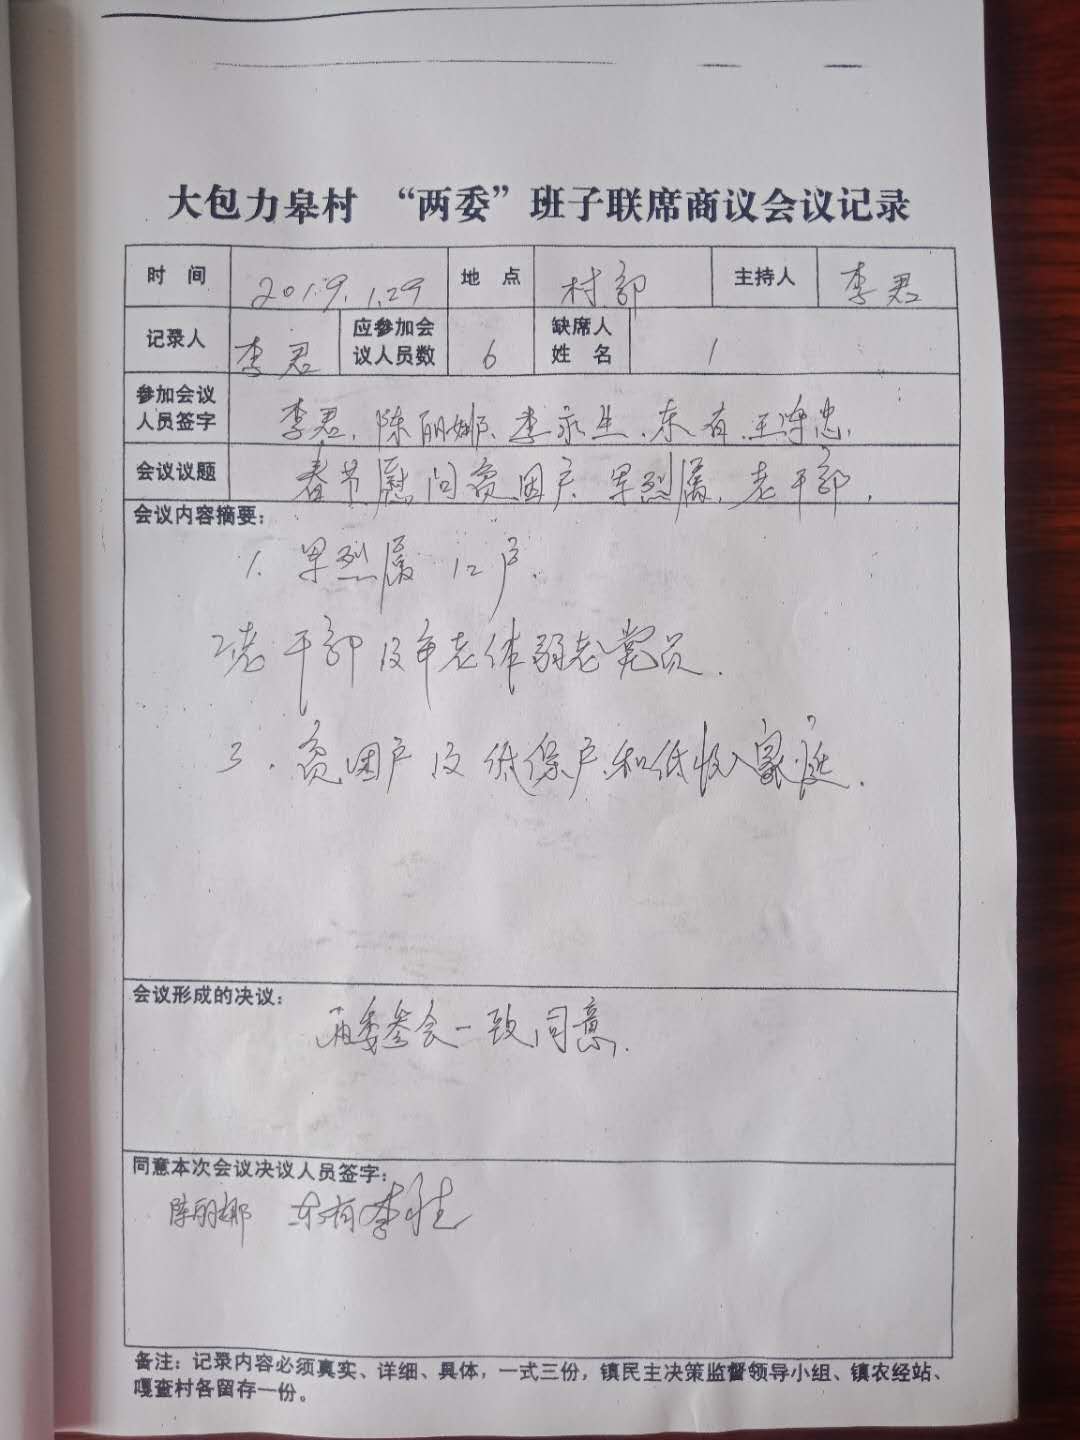 大包力皋村 “两委”班子联席商议会议记录
时 间 2019.1.29 地 点 村部 主持人 李君
记录人 李君 应参加会议人员数 6 缺席人姓名 1
参加会议人员签字 李君、陈丽娜、李永生、东有、王海忠、
会议议题 春节慰问贫困户、军烈属、老干部、
会议内容摘要:
1、军烈属12户、
2老干部及年老体弱老党员、
3、贫困户及低保户和低收入家庭、
会议形成的决议:
两委参会一致同意、
同意本次会议决议人员签字:
陈丽娜 东有 李永生
备注:记录内容必须真实、详细、具体,一式三份,镇民主决策监督领导小组、镇农经站、
嘎查村各留存一份。